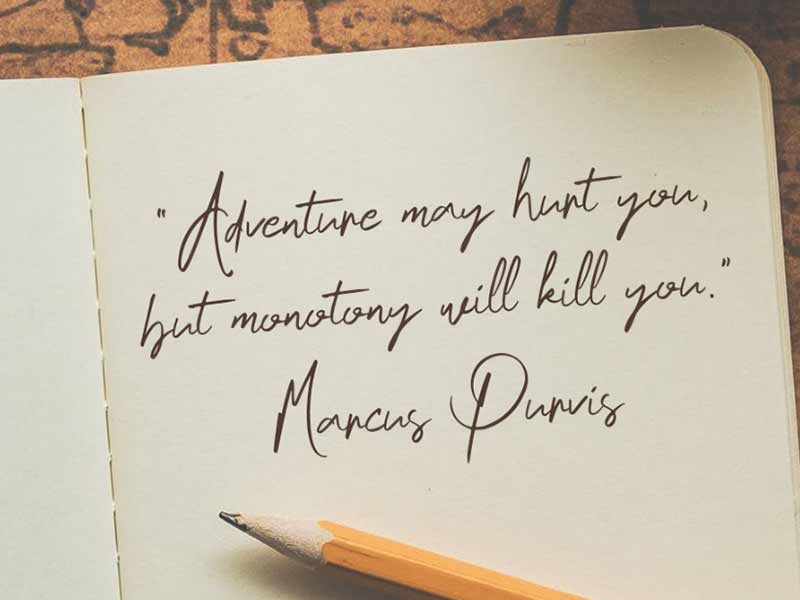 "Adventure may hurt you,
but monotony will kill you."
Marcus Purvis